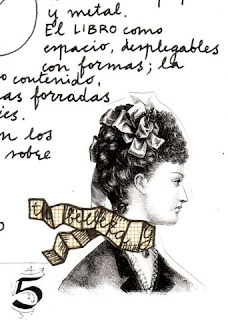 y metal.
El LIBRO como
espacio, desplegables
con formas; la
o contenido,
as forradas
ies.
n los
sobre
5